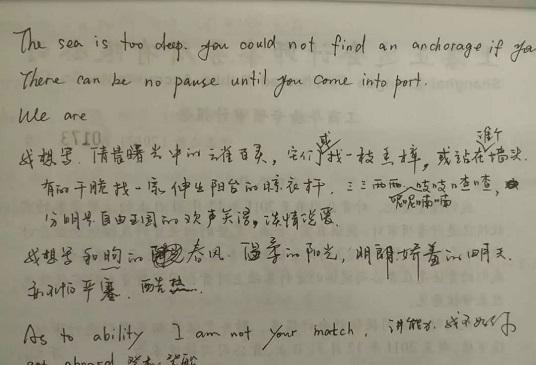 The sea is too deep. you could not find an anchorage if you
There can be no pause until you come into port.
We are
我想写. 倩昔曙光中的云雀百灵, 它们或找一枝玉梓, 或站在谁个墙头.
有的干脆找一家伸出阳台的晾衣杆. 三三两两, 吱吱喳喳,
呢呢喃喃
分明是自由王国的欢声笑语, 谈情说爱.
我想写和昫的春风. 温柔的阳光, 明朗娇羞的四月天.
严寒. 酷热.
As to ability I am not your match. 讲能力, 我不如你
get abroad
0173